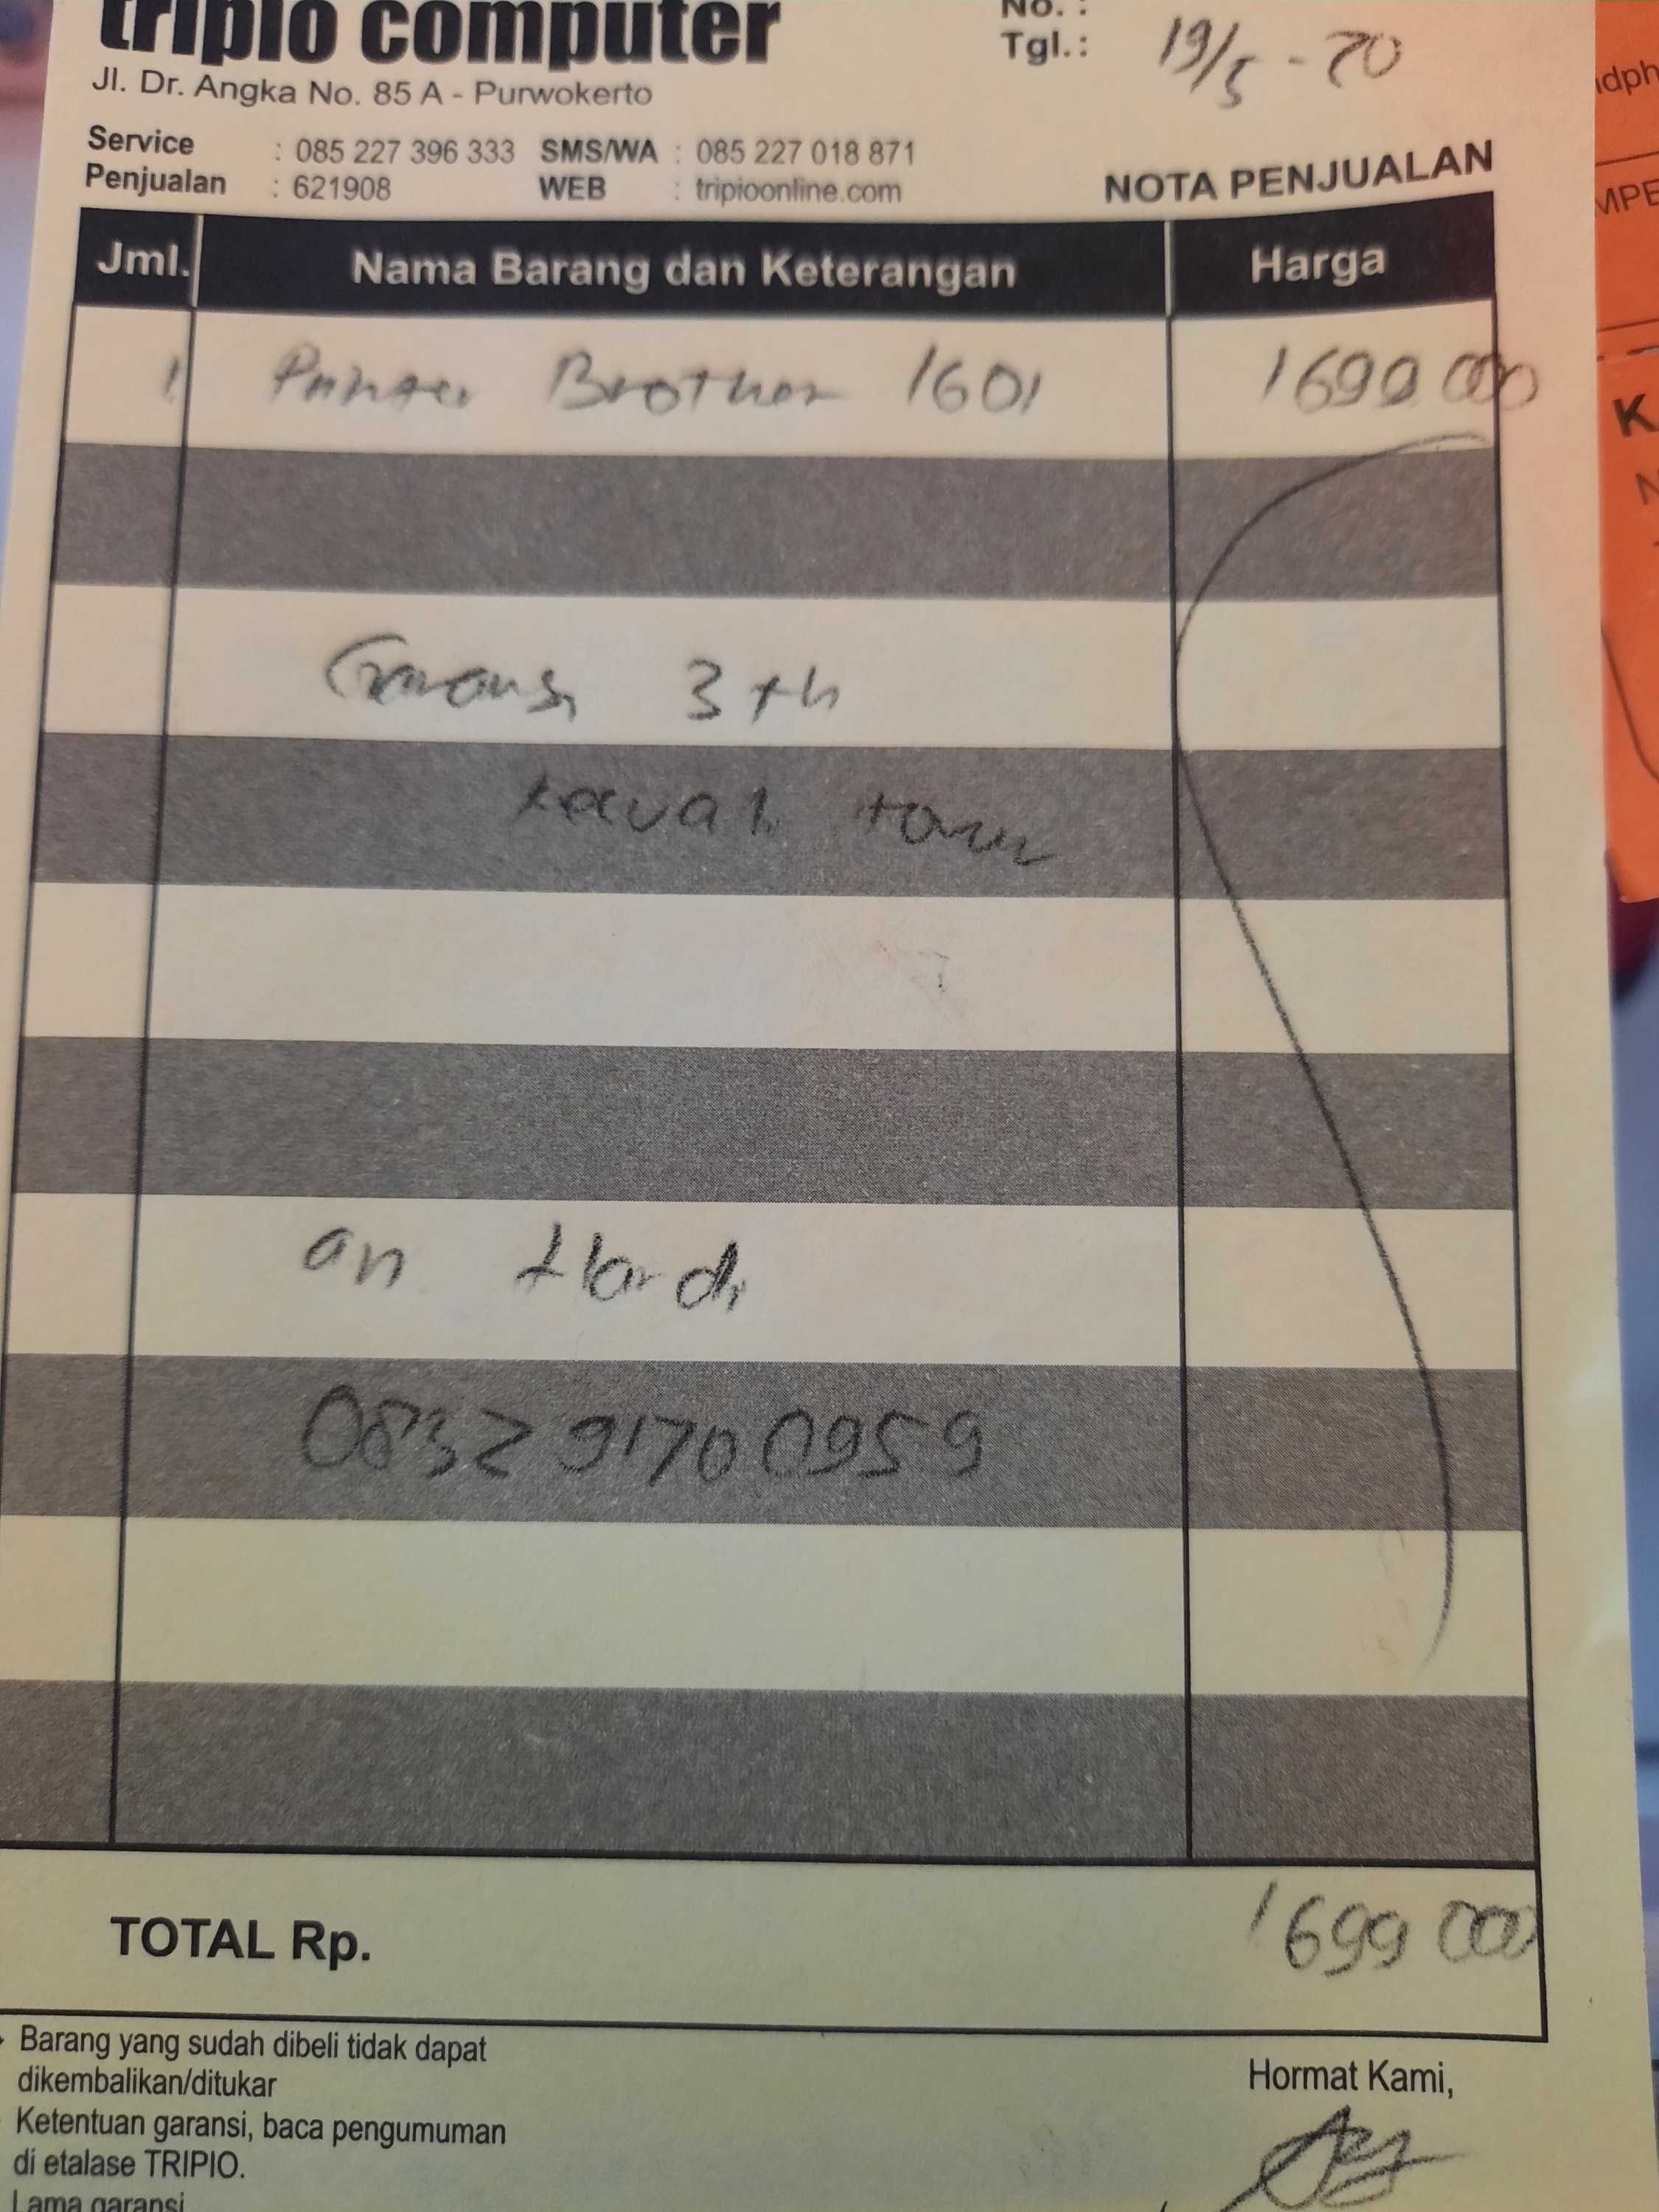 tripio computer
No. :
Tgl.: 19/5 - 20
Jl. Dr. Angka No. 85 A - Purwokerto
Service : 085 227 396 333 SMS/WA : 085 227 018 871
Penjualan : 621908 WEB : tripioonline.com
NOTA PENJUALAN
Jml. Nama Barang dan Keterangan Harga
1 Printer Brother 1601 1699 000
Garansi 3 th
an Hardi
0832 9170 0959
TOTAL Rp. 1 699 000
Barang yang sudah dibeli tidak dapat
dikembalikan/ditukar
Ketentuan garansi, baca pengumuman
di etalase TRIPIO.
Lama garansi
Hormat Kami,